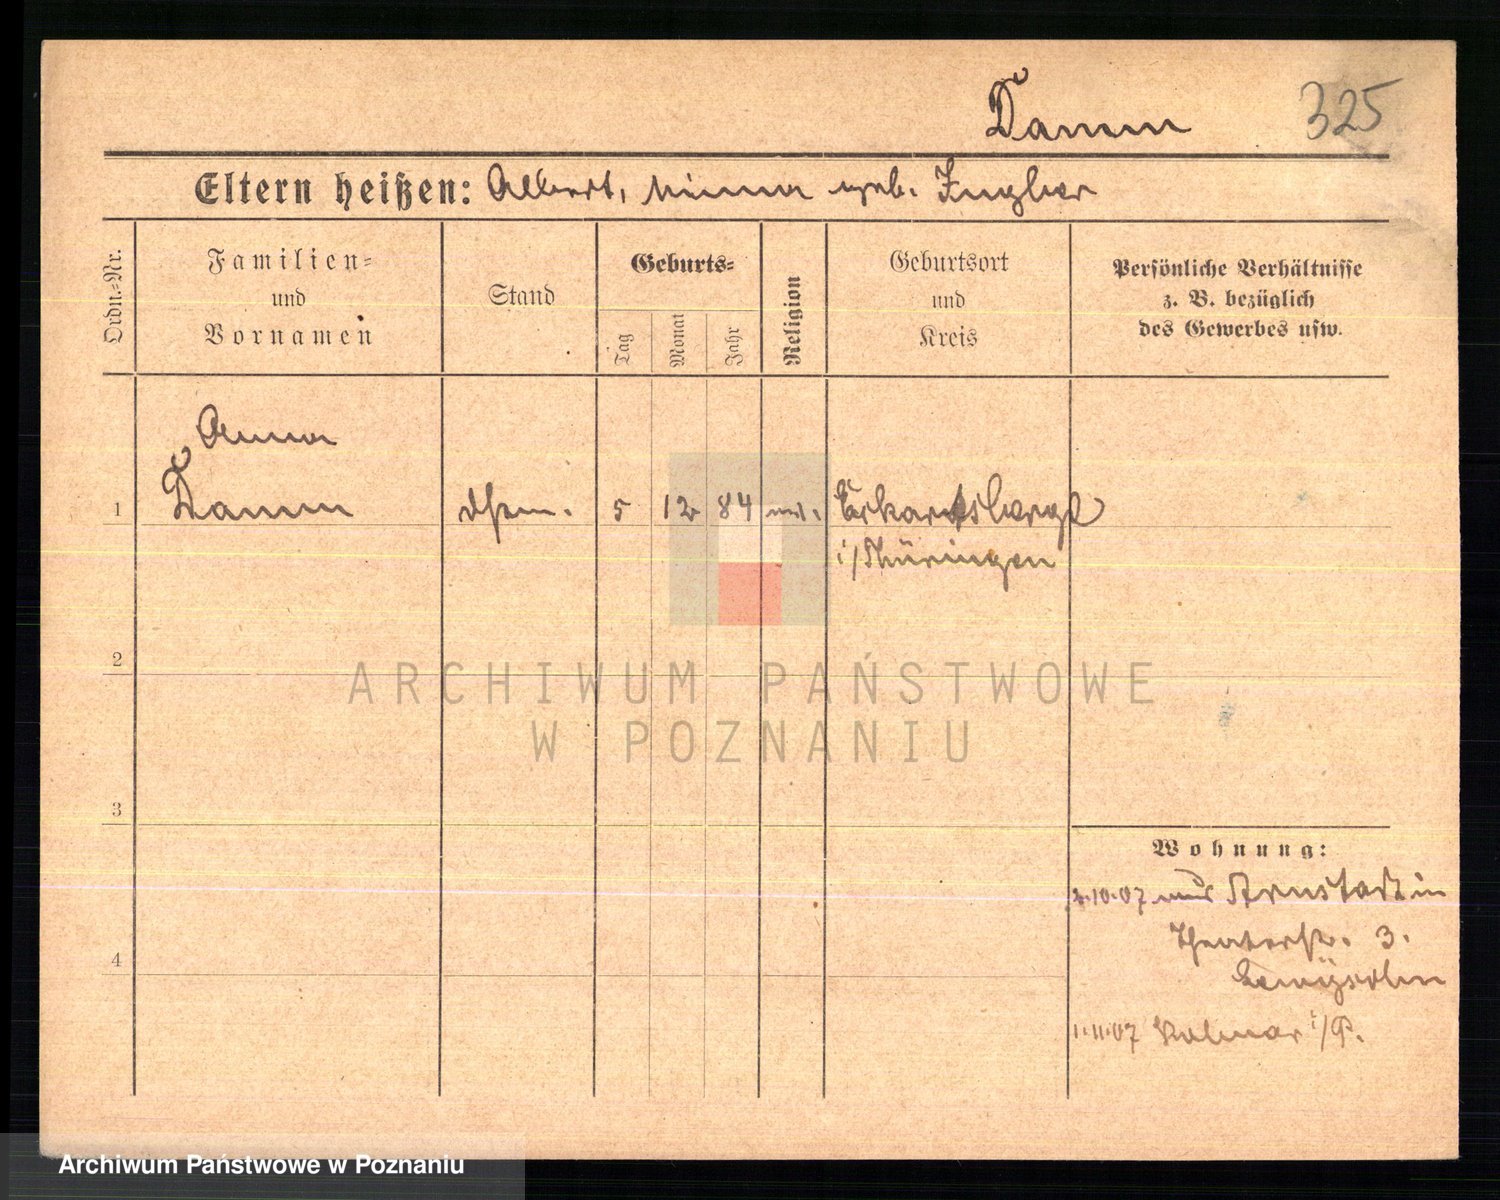 Damm 325
Eltern heißen: Albert, Minna geb. Ingber
Ordn.-Nr.
Familien-
und
Vornamen
Stand
Geburts-
Tag
Monat
Jahr
Religion
Geburtsort
und
Kreis
Persönliche Verhältnisse
z. B. bezüglich
des Gewerbes usw.
Anna
1 Damm 5 12 84 Eckartsberga
i/Thüringen
2
ARCHIWUM PAŃSTWOWE
W POZNANIU
3
4
Wohnung:
10.07 aus Arnstadt in
Theaterstr. 3.
1.11.07 Kolmar i/P.
Archiwum Państwowe w Poznaniu